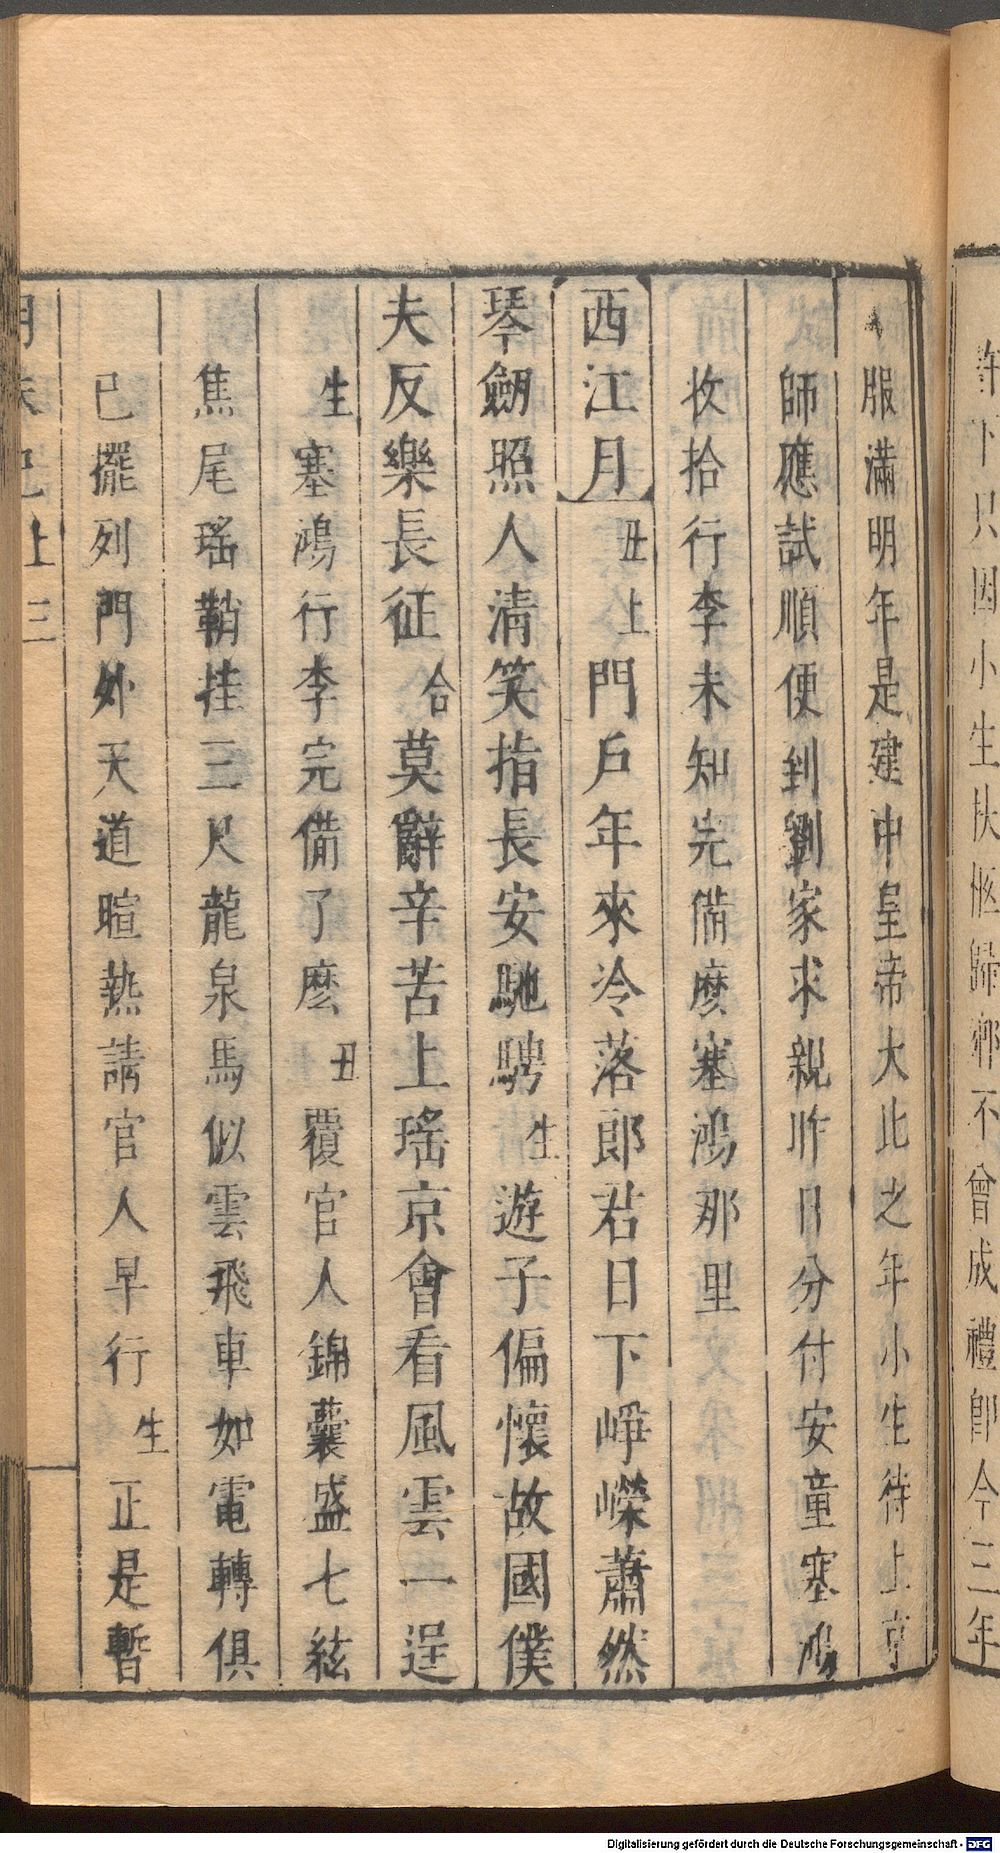 許下只因小生扶柩歸鄉不曾成禮卽今三年
服滿明年是建中皇帝大比之年小生待上京
師應試順便到劉家求親昨日分付安童塞鴻
收拾行李未知完備麽塞鴻那里
西江月 丑上 門戶年來冷落郎君日下崢嶸蕭然
琴劒照人淸笑指長安馳騁 生 遊子偏懷故國僕
夫反樂長征 合 莫辭辛苦上瑤京會看風雲一逞
生 塞鴻行李完備了麽 丑 覆官人錦囊盛七絃
焦尾瑤鞘挂三尺龍泉馬似雲飛車如電轉俱
已擺列門外天道暄熱請官人早行 生 正是暫
明朱記上 三
Digitalisierung gefördert durch die Deutsche Forschungsgemeinschaft - DFG